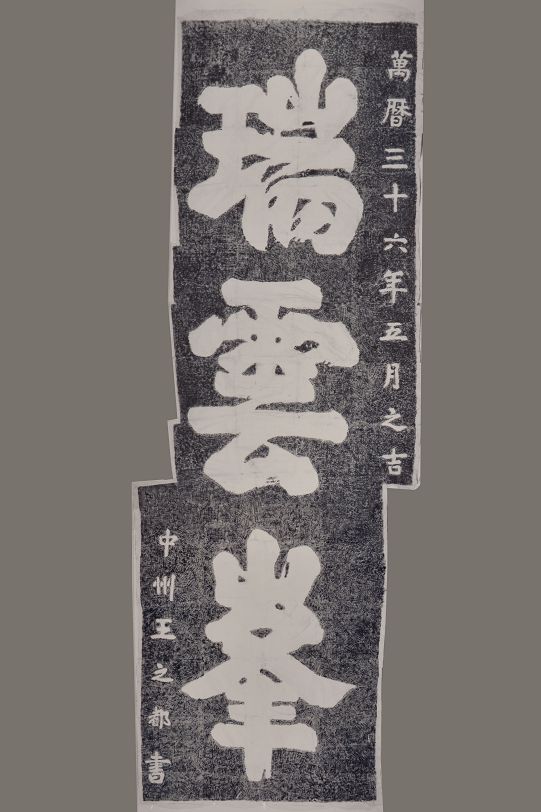 萬曆三十六年五月之吉
瑞雲峯
中州王之都書